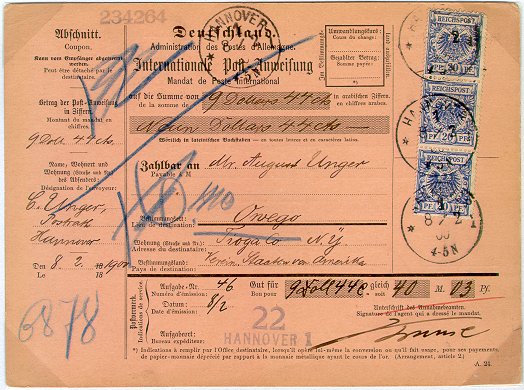 234264
Abschnitt.
Coupon.
Kann vom Empfänger abgetrennt werden.
Peut être détaché par le destinataire.
Betrag der Post-Anweisung in Ziffern
Montant du mandat en chiffres.
9 Doll. 44 cts.
Name, Wohnort und Wohnung (Straße und Nr.) des Absenders:
Désignation de l'envoyeur:
C. Unger,
Hannover
Den 8. 2. 1900
Le 18
6878
Deutschland.
Administration des Postes d'Allemagne.
Internationale Post-Anweisung
Mandat de Poste International
HANNOVER
Umwandlungskurs:
Cours du change:
Gezahlter Betrag:
Somme payée:
Auf die Summe von 9 Dollars 44 cts in arabischen Ziffern.
de la somme de en chiffres arabes.
Neun Dollars 44 cts
Wörtlich in lateinischen Buchstaben — en toutes lettres et en caractères latins.
Zahlbar an Mr. August Unger
Payable à M
Bestimmungsort: Owego
Lieu de destination:
Wohnung (Straße und Nr.) Tioga Co. N.Y.
Adresse du destinataire:
Bestimmungsland: Verein. Staaten von Amerika
Pays de destination:
REICHSPOST
20 PF 20
REICHSPOST
PF 20
REICHSPOST
8 / 2
4-5N
Postvermerk.
Indications de service.
Ausgabe-Nr. 46
Numéro d'émission:
Datum: 8/2
Date d'émission:
Ausgabeort:
Bureau expéditeur:
Gut für 9 Doll 44 c. gleich 40 M. 03 Pf.
Bon pour soit
22
HANNOVER 1
Unterschrift des Annahmebeamten.
Signature de l'agent qui a dressé le mandat.
*) Indications à remplir par l'Office destinataire, lorsqu'il opère lui-même la conversion ou qu'il fait usage, pour ses payements, de papier-monnaie déprécié par rapport à la monnaie métallique ayant le cours de l'or. (Arrangement, article 2.)
A. 24.